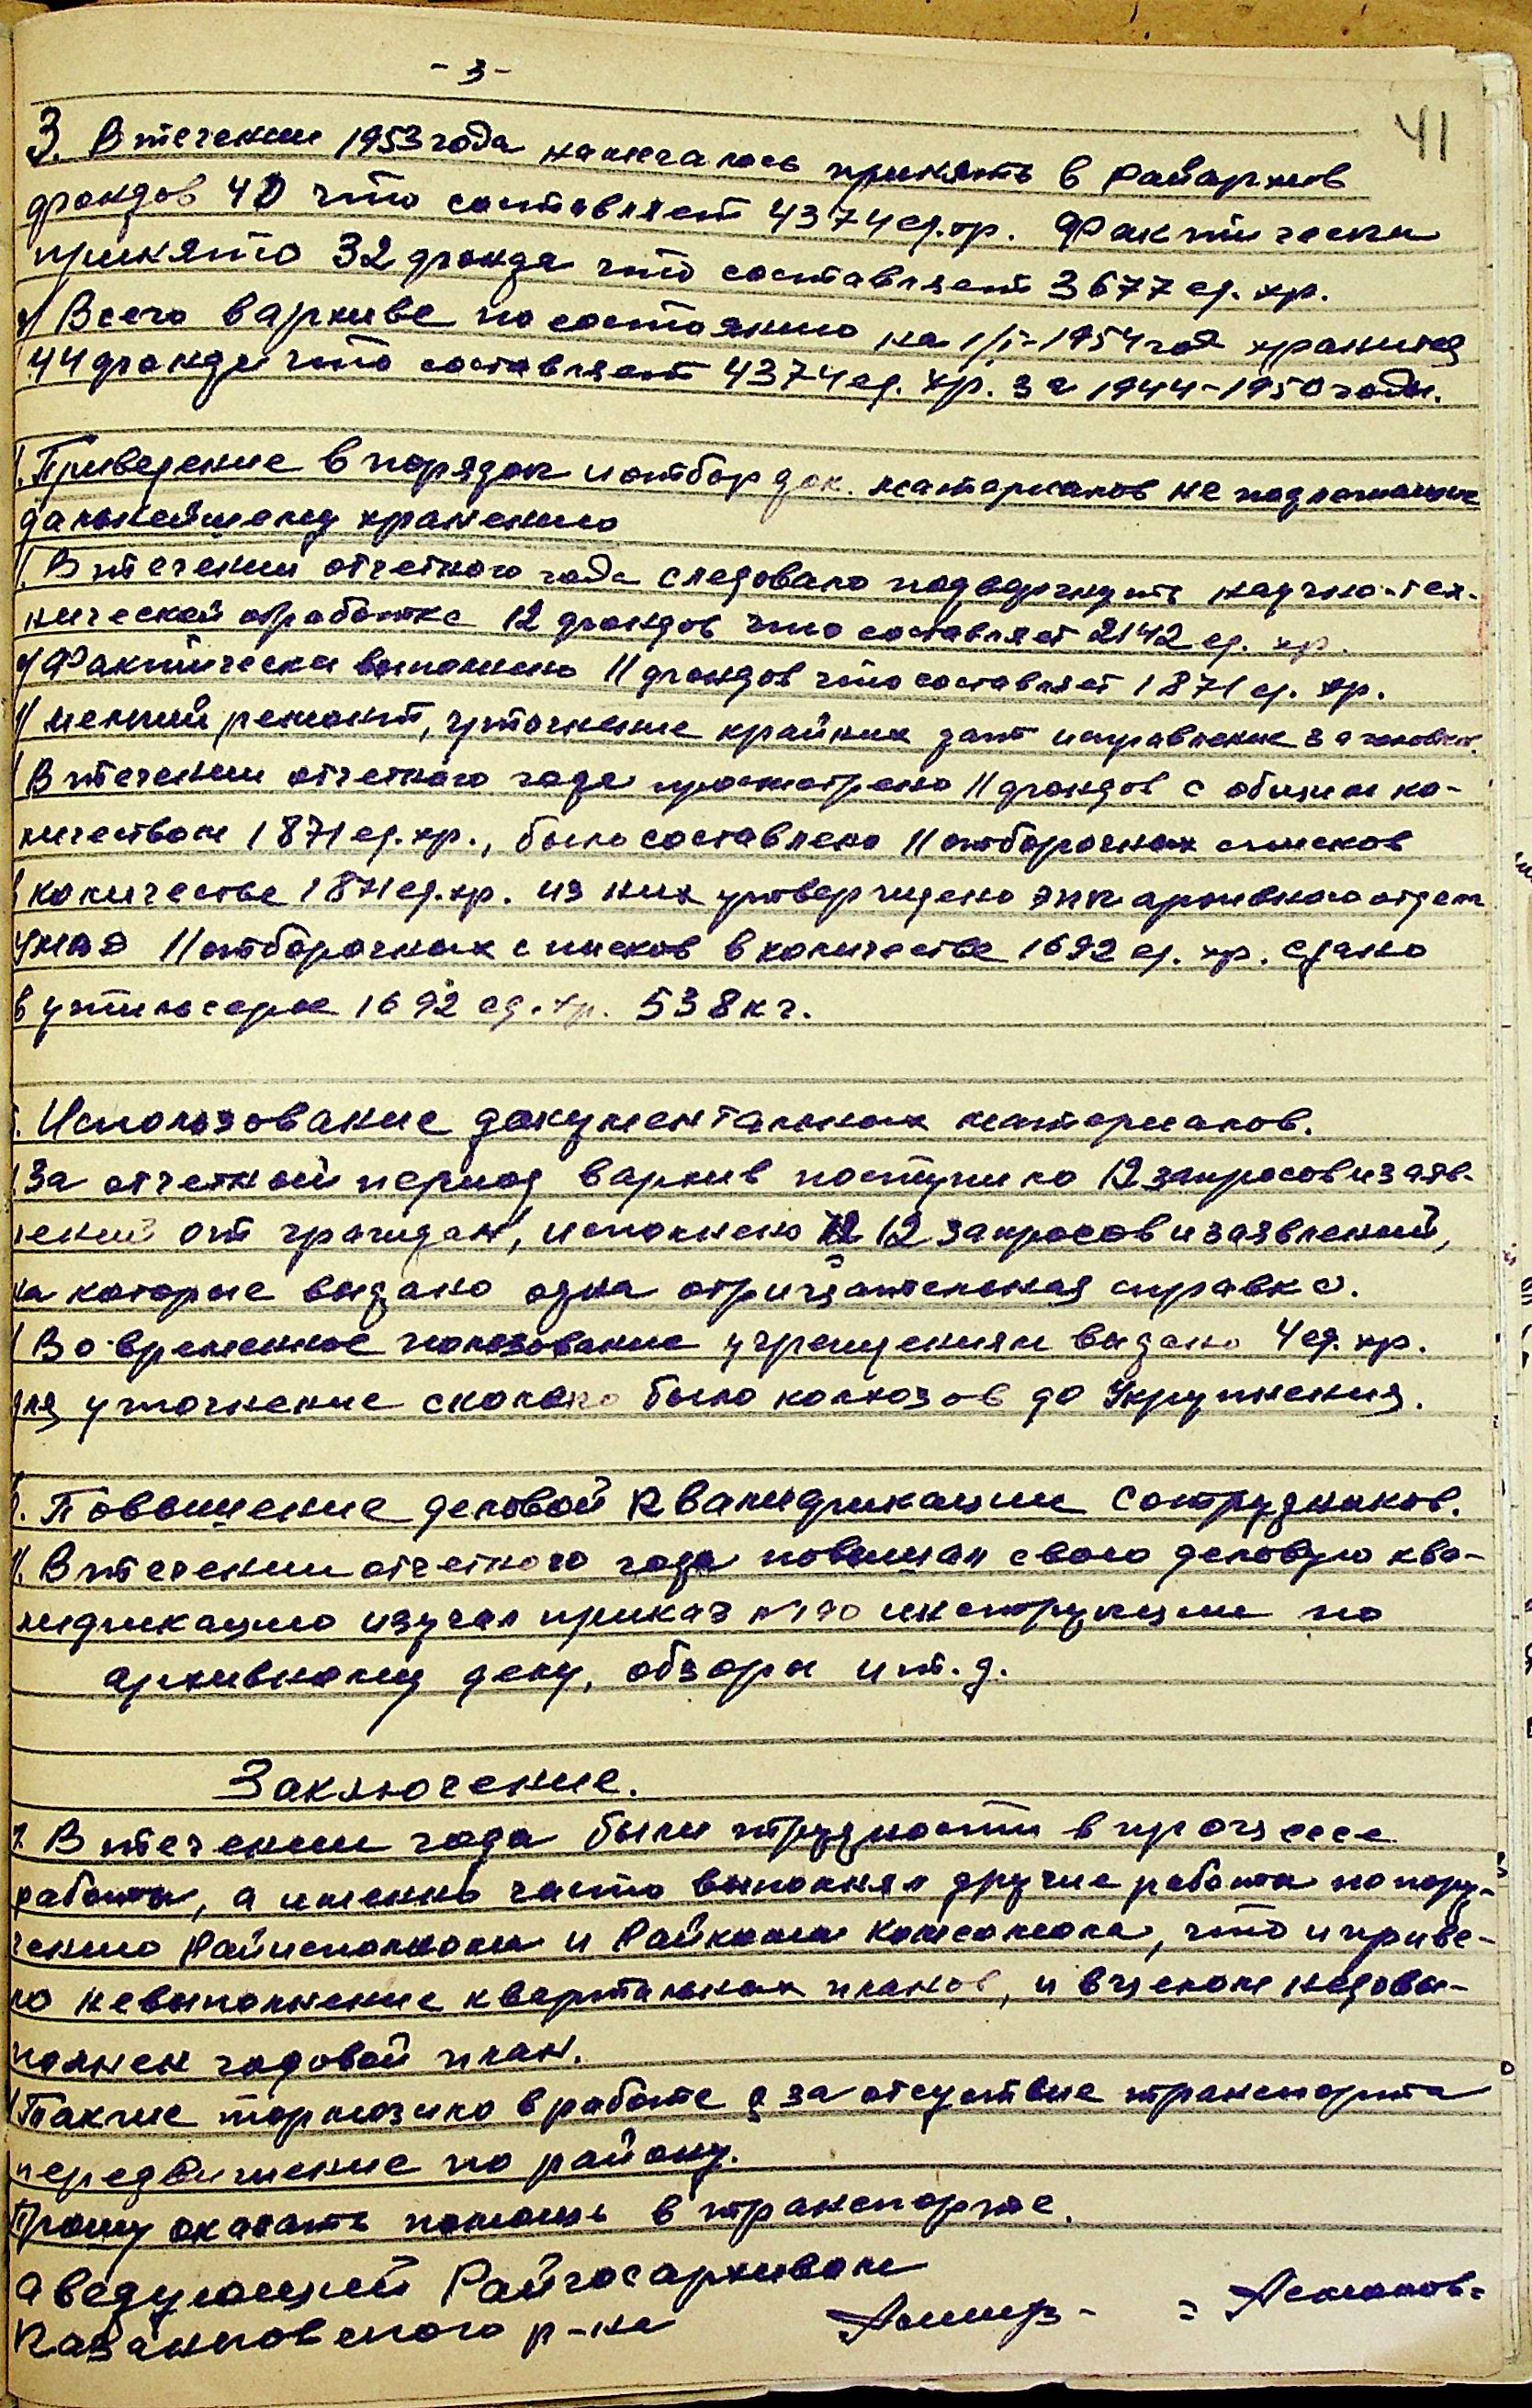 - 3 -
41
3. В течении 1953 года намечалось принять в Райархив
фондов 40 что составляет 4374 ед. хр. Фактически
принято 32 фонда что составляет 3677 ед. хр.
Всего в архиве по состоянию на 1/I-1954 год хранится
44 фонда что составляет 4374 ед. хр. за 1944-1950 годы.
Приведение в порядок и отбор док. материалов не подлежащие
дальнейшему хранению
В течении отчетного года следовало подвергнуть научно-тех-
нической обработке 12 фондов что составляет 2142 ед. хр.
Фактически выполнено 11 фондов что составляет 1871 ед. хр.
мелкий ремонт, уточнение крайних дат исправление заголовков.
В течении отчетного года просмотрено 11 фондов с общим ко-
личеством 1871 ед. хр., было составлено 11 отборочных списков
в количестве 1871 ед. хр. из них утверждено ЭПК архивного отдела
УМВД 11 отборочных списков в количестве 1692 ед. хр. Сдано
в утильсырье 1692 ед. хр. 538 кг.
Использование документальных материалов.
За отчетный период в архив поступило 12 запросов и заяв-
лений от граждан, исполнено 12 запросов и заявлений,
на которые выдано одна отрицательная справка.
Во временное пользование учреждениям выдано 4 ед. хр.
для уточнение сколько было колхозов до Укрупнения.
Повышение деловой Квалификации Сотрудников.
В течении отчетного года повышал свою деловую ква-
лификацию изучал приказ № 190 инструкции по
архивному делу, обзоры и т. д.
Заключение.
1. В течении года были трудности в процессе
работы, а именно часто выполнял другие работы по пору-
чению Райисполкома и Райкома Комсомола, что и приве-
ло невыполнение квартальных планов, и в целом недовы-
полнен годовой план.
Также тормозило в работе за отсутствие транспорта
передвижение по району.
Прошу оказать помощь в транспорте.
Заведующий Райгосархивом
Казанковского р-на = Асманов =